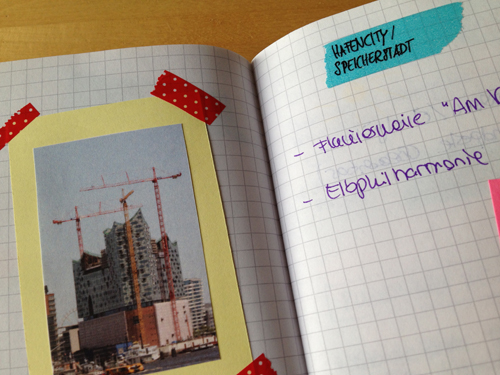 HAFENCITY/
SPEICHERSTADT
- Flaniermeile "Am
- Elbphilharmonie